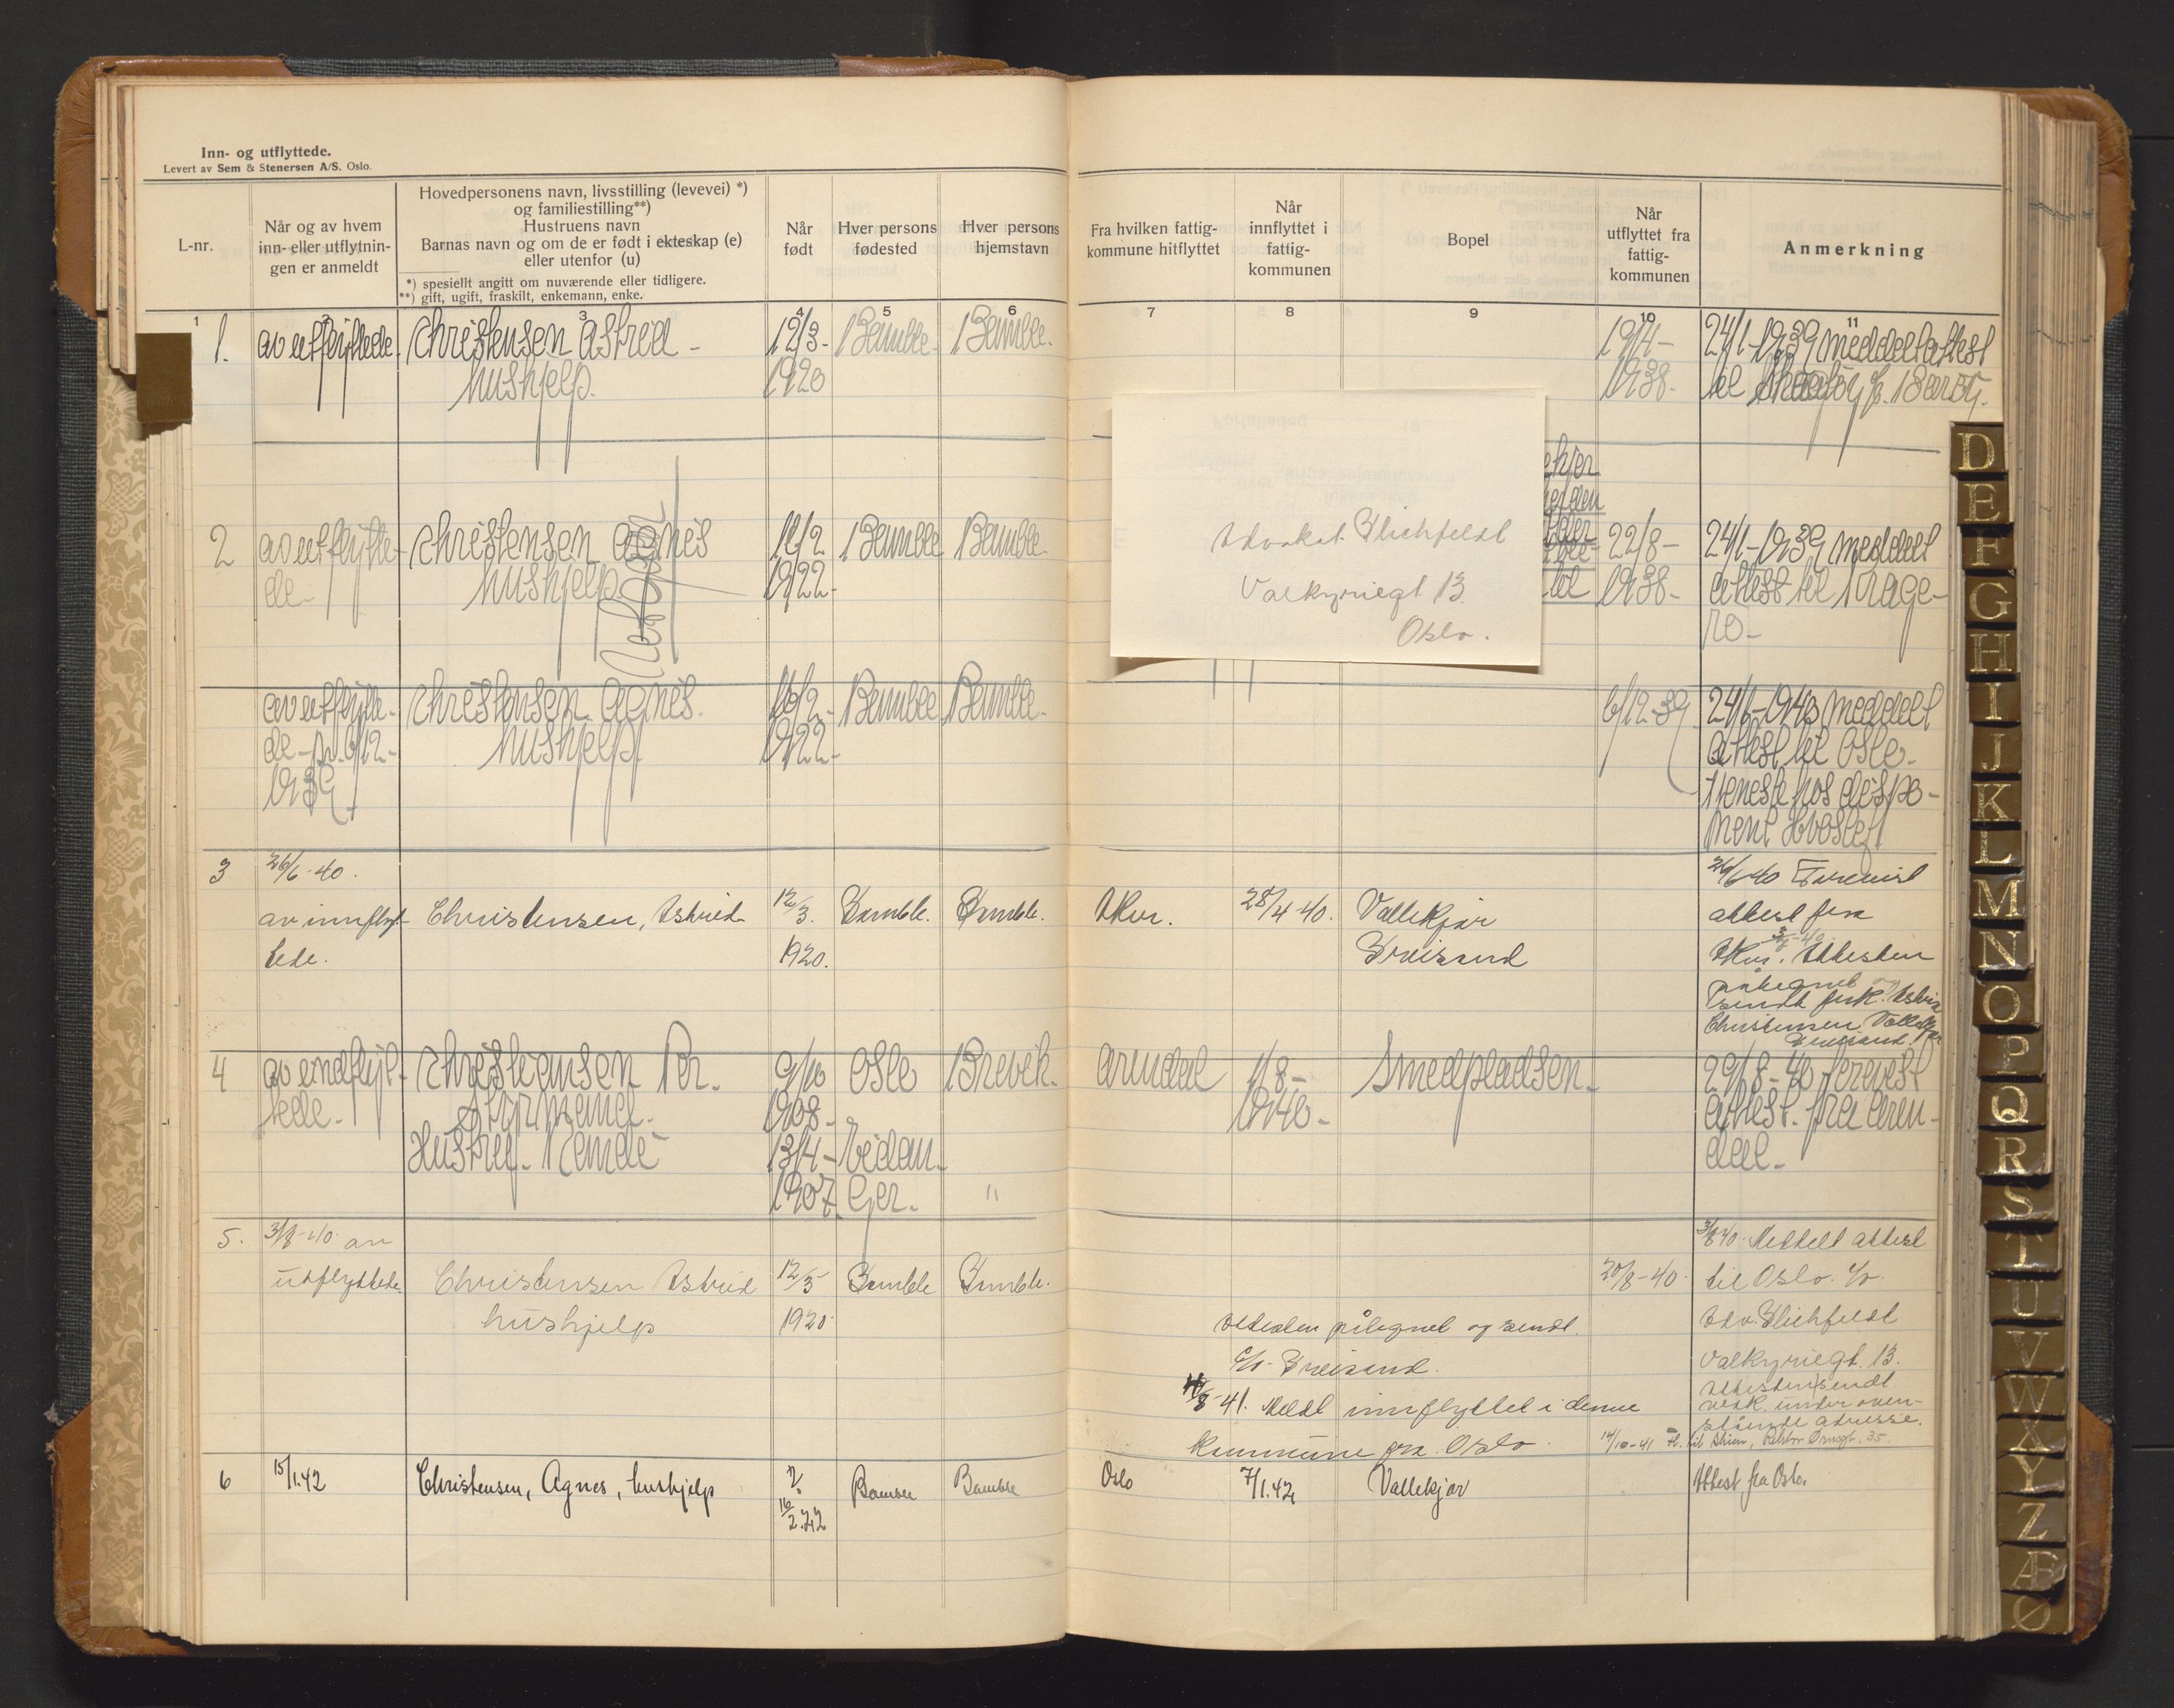 Inn- og utflyttede.
Levert av Sem & Stenersen A/S. Oslo.
L-nr.
Når og av hvem
inn- eller utflytnin-
gen er anmeldt
Hovedpersonens navn, livsstilling (levevei) *)
og familiestilling**)
Hustruens navn
Barnas navn og om de er født i ekteskap (e)
eller utenfor (u)
*) spesiellt angitt om nuværende eller tidligere.
**) gift, ugift, fraskilt, enkemann, enke.
Når
født
Hver persons
fødested
Hver persons
hjemstavn
Fra hvilken fattig-
kommune hitflyttet
Når
innflyttet i
fattig-
kommunen
Bopel
Når
utflyttet fra
fattig-
kommunen
Anmerkning
1 2 3 4 5 6 7 8 9 10 11
1. av utflyttede. Christensen Astrid - 12/3- Bamble. Bamble. 19/4- 24/1-1939 meddelt attest
hushjelp. 1920 1938. til
2 av utflytte- Christensen Agnis 16/2 Bamble Bamble. 22/8- 24/1-1939 meddelt
de- hushjelp 1922- 1938- attest til Krage-
rø-
Advokat Blichfeldt
Valkyriegt 13.
Oslo.
av utflytte- Christensen Agnis. 16/2- Bamble Bamble. 6/12-39 24/1-1940 meddelt
de- 6/12- hushjelp 1922- attest til Oslo.
1939 tjeneste hos dispo-
nent
3 26/6-40. 26/6 40 Fremvist
av innflyt- Christensen, Astrid 12/3. Bamble. Bamble. Aker. 28/4 40. Vallekjær attest fra
tede. 1920. Breisand Aker. Attesten
påtegnet og
sendt frk. Astrid
Christensen Vallekjær
Breisand.
4 av indflyt- Christiansen Per. 9/10 Oslo Brevik. Arendal 1/8- Smedpladsen. 29/8-40 forevist
tede- styrmand. 1908- 1940- attest. fra Aren-
Hustru. 13/4- dal-
1907. "
5. 3/8-40 av 3/8 40. Meddelt attest
utflyttede Christensen Astrid 12/3 Bamble Bamble. 20/8-40. til Oslo. c/o.
hushjelp 1920 Attesten påtegnet og sendt. Adv. Blichfeldt
c/o- Breisand. Valkyriegt. 13.
8-41. Meldt innflyttet i denne Attesten sendt
vedk. under oven-
stående adresse.
kommune fra Oslo. 14/10-41 til Skien,
6 15/1.42 Christensen, Agnes, hushjelp ? Bamble Bamble Oslo 7/1.42 Vallekjær Attest fra Oslo.
16/2.22
D
E
F
G
H
I
J
K
L
M
N
O
P
Q
R
S
T
U
V
W
X
Y
Z
Æ
Ø